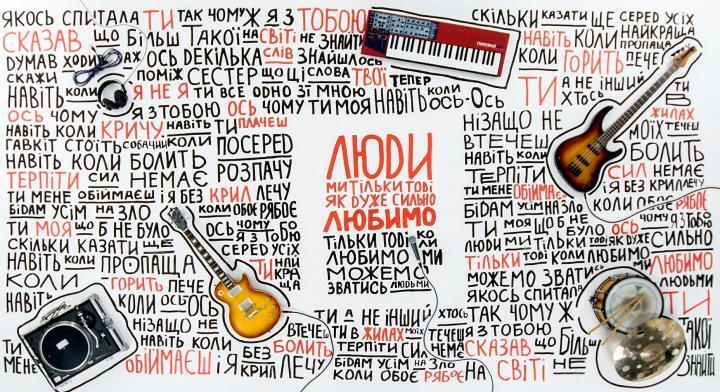 ЯКОСЬ СПИТАЛА ТИ ТАК ЧОМУ Ж Я З ТОБОЮ
СКАЗАВ ЩО БІЛЬШ ТАКОЇ НА СВІТІ НЕ ЗНАЙТИ
ДУМАВ ХОДИВ ОСЬ ДЕКІЛЬКА СЛІВ ЗНАЙШЛОСЬ
СКАЖИ ПОМІЖ СЕСТЕР ЩО ЦІ СЛОВА ТВОЇ ТЕПЕР
НАВІТЬ КОЛИ Я НЕ Я ТИ ВСЕ ОДНО ЗІ МНОЮ
ОСЬ ЧОМУ Я З ТОБОЮ ОСЬ ЧОМУ ТИ МОЯ НАВІТЬ КОЛИ ОСЬ-ОСЬ
НАВІТЬ КОЛИ КРИЧУ НАВІТЬ ТИ ПЛАЧЕШ
ГАВКІТ СТОЇТЬ СОБАЧИЙ КОЛИ ПОСЕРЕД
НАВІТЬ КОЛИ БОЛИТЬ РОЗПАЧУ
ТЕРПІТИ СИЛ НЕМАЄ
ТИ МЕНЕ ОБІЙМАЄШ І Я БЕЗ КРИЛ ЛЕЧУ
БІДАМ УСІМ НА ЗЛО КОЛИ ОБОЄ РЯБОЄ
ТИ МОЯ ЩО Б НЕ БУЛО ОСЬ ЧОМУ Я З ТОБОЮ
СКІЛЬКИ КАЗАТИ ЩЕ СЕРЕД УСІХ
НАВІТЬ КОЛИ ПРОПАЩА ТИ НАЙКРАЩА
КОЛИ ГОРИТЬ ПЕЧЕ
НАВІТЬ КОЛИ ОСЬ-ОСЬ
НІЗАЩО НЕ ВТЕЧЕШ
НАВІТЬ КОЛИ БОЛИТЬ
ТИ МЕНЕ ОБІЙМАЄШ І Я БЕЗ КРИЛ ЛЕЧУ
ЛЮДИ
МИ ТІЛЬКИ ТОДІ
ЯК ДУЖЕ СИЛЬНО
ЛЮБИМО
ТІЛЬКИ ТОДІ КОЛИ
ЛЮБИМО МИ
МОЖЕМО
ЗВАТИСЬ ЛЮДЬМИ
ТИ А НЕ ІНШИЙ ХТОСЬ
ТИ В ЖИЛАХ МОЇХ ТЕЧЕШ
ТЕРПІТИ СИЛ НЕМА
БІДАМ УСІМ НА ЗЛО
КОЛИ ОБОЄ РЯБОЄ
СКІЛЬКИ КАЗАТИ ЩЕ СЕРЕД УСІХ
НАВІТЬ КОЛИ НАЙКРАЩА ПРОПАЩА
КОЛИ ГОРИТЬ ПЕЧЕ
ТИ А НЕ ІНШИЙ ХТОСЬ
ТИ В ЖИЛАХ
НІЗАЩО НЕ МОЇХ ТЕЧЕШ
ВТЕЧЕШ
НАВІТЬ КОЛИ БОЛИТЬ
ТЕРПІТИ СИЛ НЕМАЄ
ТИ МЕНЕ ОБІЙМАЄШ І Я БЕЗ КРИЛ ЛЕЧУ
БІДАМ УСІМ НА ЗЛО КОЛИ ОБОЄ РЯБОЄ
ТИ МОЯ ЩО Б НЕ БУЛО ОСЬ ЧОМУ Я З ТОБОЮ
ЛЮДИ МИ ТІЛЬКИ ТОДІ ЯК ДУЖЕ СИЛЬНО
ТІЛЬКИ ТОДІ КОЛИ ЛЮБИМО
МОЖЕМО ЗВАТИСЬ ЛЮДЬМИ
ЯКОСЬ СПИТАЛА ТИ
ТАК ЧОМУ Ж
Я З ТОБОЮ
СКАЗАВ ЩО БІЛЬШ ТАКОЇ
НА СВІТІ НЕ ЗНАЙТИ